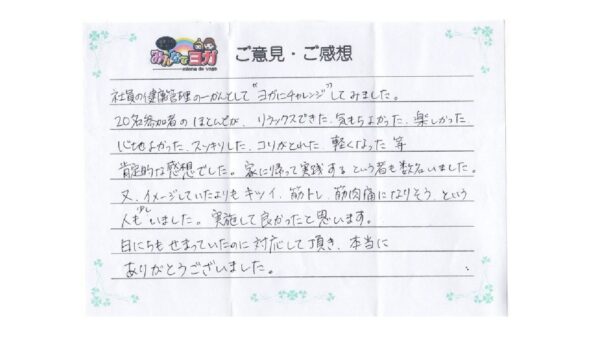 みんなでヨガ
minna de yoga
ご意見・ご感想
社員の健康管理の一かんとして"ヨガにチャレンジ"してみました。
20名参加者のほとんどが、リラックスできた、気もちよかった、楽しかった
心ちよかった、スッキリした、コリがとれた、軽くなった 等
肯定的な感想でした。家に帰って実践するという者も数名いました。
又、イメージしていたよりもキツイ、筋トレ、筋肉痛になりそう、という
人も少しいました。実施して良かったと思います。
日にちもせまっていたのに対応して頂き、本当に
ありがとうございました。